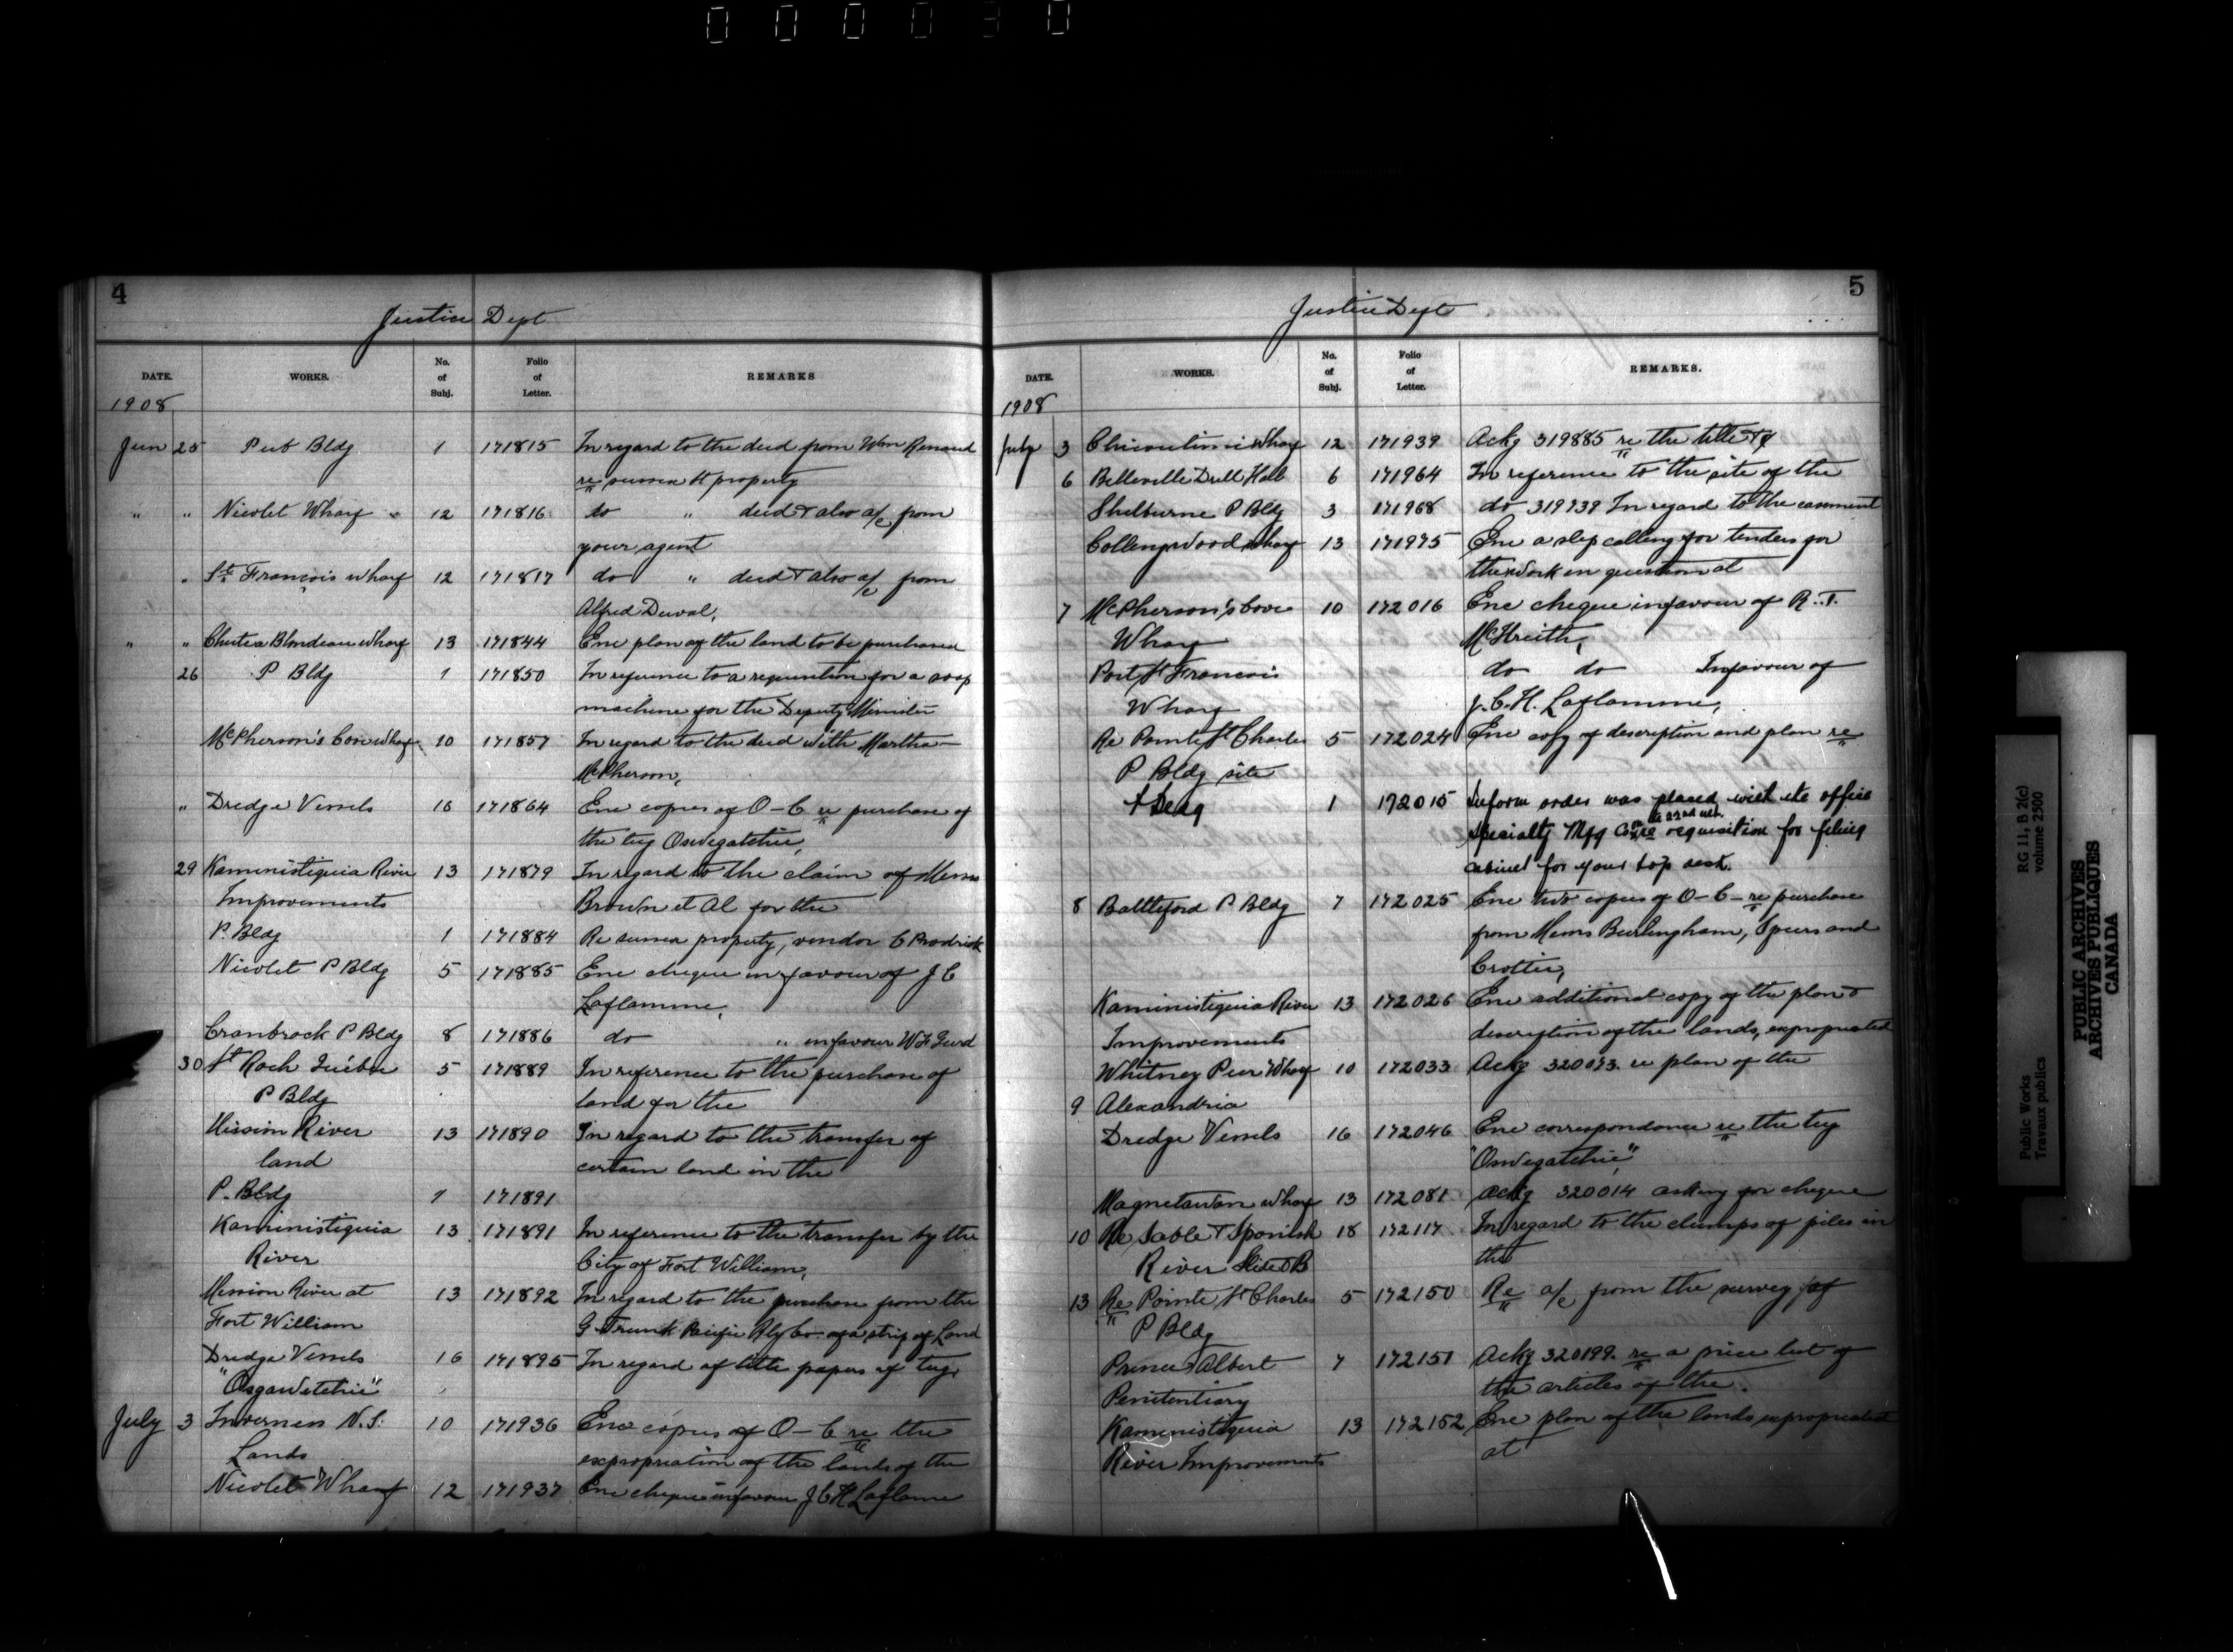 000030
4
Justice Dept
DATE. WORKS. No. of Subj. Folio of Letter. REMARKS
1908
Jun 25 Pub Bldg 1 171815 In regard to the deed from Wm Renaud
re sussex st property
" " Nicolet Wharf " 12 171816 do " deed & also a/c from
your agent
" Ste François wharf 12 171817 do " deed & also a/c from
Alfred Duval,
" " Chute a Blondeau wharf 13 171844 Enc plan of the land to be purchased
26 P Bldg 1 171850 In reference to a requisition for a soap
machine for the Deputy Minister
McPherson's Cove wharf 10 171857 In regard to the deed with Martha
McPherson,
" Dredge Vessels 16 171864 Enc copies of O-C re purchase of
the tug Oswegatchie,
29 Kaministiquia River 13 171879 In regard to the claim of Messrs
Improvements Brown et al for the
P. Bldg 1 171884 Re sussex property, vendor C Brodrick
Nicolet P Bldg 5 171885 Enc cheque in favour of J C
Laflamme,
Cranbrook P Bldg 8 171886 do " in favour W F Gurd
30 St Roch Québec 5 171889 In reference to the purchase of
P Bldg land for the
Mission River 13 171890 In regard to the transfer of
land certain land in the
P. Bldg 1 171891
Kaministiquia 13 171891 In reference to the transfer by the
River City of Fort William,
Mission River at 13 171892 In regard to the purchase from the
Fort William G Trunk Pacific Rly Co. of a strip of Land
Dredge Vessels 16 171895 In regard of title papers of tug
"Osgawetchie"
July 3 Inverness N.S. 10 171936 Enc copies of O-C re the
Lands expropriation of the lands of the
Nicolet Wharf 12 171937 Enc cheque in favour J C H Laflame
5
Justice Dept
DATE. WORKS. No. of Subj. Folio of Letter. REMARKS.
1908
July 3 Chicoutimi Wharf 12 171939 Ackg 319885 re the title of
6 Belleville Drill Hall 6 171964 In reference to the site of the
Shelburne P Bldg 3 171968 do 319739 In regard to the easement
Collingwood wharf 13 171975 Enc a slip calling for tenders for
the work in question at
7 McPherson's Cove 10 172016 Enc cheque in favour of R. T.
Wharf
Port St Francois do do In favour of
Wharf J. C. H. Laflamme,
Re Pointe St Charles 5 172024 Enc copy of description and plan re
P Bldg site
P Bldg 1 172015 Inform order was placed with the office
Specialty Mfg Co on the 22nd ult. re requisition for filing
cabinet for your top desk.
8 Battleford P Bldg 7 172025 Enc two copies of O-C- re purchase
from Messrs Burlingham, Speers and
Crottie,
Kaministiquia River 13 172026 Enc additional copy of the plan &
Improvements description of the lands, expropriated
Whitney Pier Wharf 10 172033 Ackg 320073. re plan of the
9 Alexandria
Dredge Vessels 16 172046 Enc correspondence re the tug
"Oswegatchie"
Magnetawan wharf 13 172081 Ackg 320014 asking for cheque
10 Re Sable & Spanish 18 172117 In regard to the clumps of piles in
River Slide & B the
13 Re Pointe St Charles 5 172150 Re a/c from the survey of
P Bldg
Prince Albert 7 172151 Ackg 320199. re a price list of
Penitentiary the articles of the.
Kaministiquia 13 172152 Enc plan of the lands expropriated
River Improvements at
Public Works
Travaux publics
RG 11, B 2(c)
volume 2500
PUBLIC ARCHIVES
ARCHIVES PUBLIQUES
CANADA